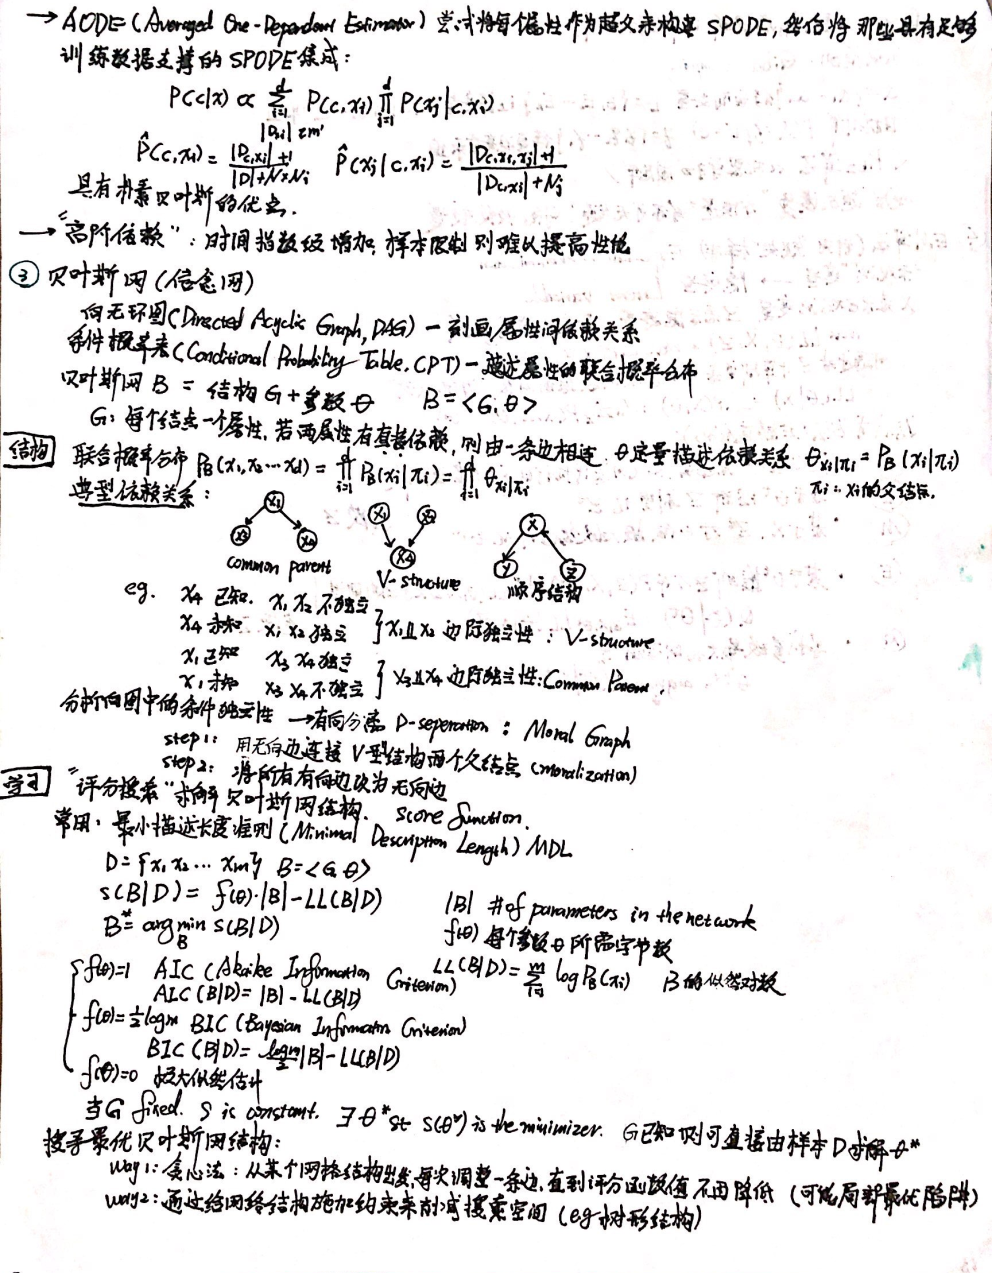 → AODE (Averaged One-Dependent Estimator) 尝试将每个属性作为超父来构建 SPODE, 然后将那些具有足够
训练数据支撑的 SPODE 集成:
P(c|x) ∝ Σ_{i=1}^{d} P(c,xi) ∏_{j=1}^{d} P(xj|c,xi)
|Dxi| ≥ m'
P̂(c,xi) = (|Dc,xi|+1)/(|D|+N×Ni)   P̂(xj|c,xi) = (|Dc,xi,xj|+1)/(|Dc,xi|+Nj)
具有朴素贝叶斯的优点.
→ "高阶依赖": 时间指数级增加, 样本限制则难以提高性能
③ 贝叶斯网 (信念网)
向无环图 (Directed Acyclic Graph, DAG) — 刻画属性间依赖关系
条件概率表 (Conditional Probability Table, CPT) — 描述属性的联合概率分布
贝叶斯网 B = 结构 G + 参数 θ   B = <G, θ>
G: 每个结点一个属性, 若两属性有直接依赖, 则由一条边相连 θ 定量描述依赖关系 θxi|πi = PB(xi|πi)
结构 联合概率分布 PB(x1,x2…xd) = ∏_{i=1}^{d} PB(xi|πi) = ∏_{i=1}^{d} θxi|πi   πi: xi的父结点.
典型依赖关系:
x1 x3 x4   x1 x2 x4   x y z
common parent   V-structure   顺序结构
eg. x4 已知. x1 x2 不独立
x4 未知 x1 x2 独立 } x1⫫x2 边际独立性: V-structure
x1 已知 x3 x4 独立
x1 未知 x3 x4 不独立 } x3⫫x4 边际独立性: Common Parent.
分析有向图中的条件独立性 → 有向分离 D-seperation: Moral Graph
step1: 用无向边连接 V 型结构两个父结点 (moralization)
step2: 将所有有向边改为无向边
学习 "评分搜索" 求解贝叶斯网结构. score function.
常用: 最小描述长度准则 (Minimal Description Length) MDL
D = {x1, x2 … xm} B = <G, θ>
s(B|D) = f(θ)·|B| - LL(B|D)   |B| # of parameters in the network
B* = argmin_B s(B|D)   f(θ) 每个参数 θ 所需字节数
{ f(θ)=1 AIC (Akaike Information Criterion)   LL(B|D) = Σ_{i=1}^{m} log PB(xi)   B的似然对数
AIC(B|D) = |B| - LL(B|D)
f(θ)=½logm BIC (Bayesian Informatn Criterion)
BIC(B|D) = (logm/2)|B| - LL(B|D)
f(θ)=0 极大似然估计
当G fixed. S is constant. ∃ θ* st s(θ*) is the minimizer. G已知 则可直接由样本 D 求解 θ*
搜寻最优贝叶斯网结构:
way1: 贪心法: 从某个网络结构出发, 每次调整一条边, 直到评分函数值不再降低 (可能局部最优陷阱)
way2: 通过给网络结构施加约束来削减搜索空间 (eg 树形结构)